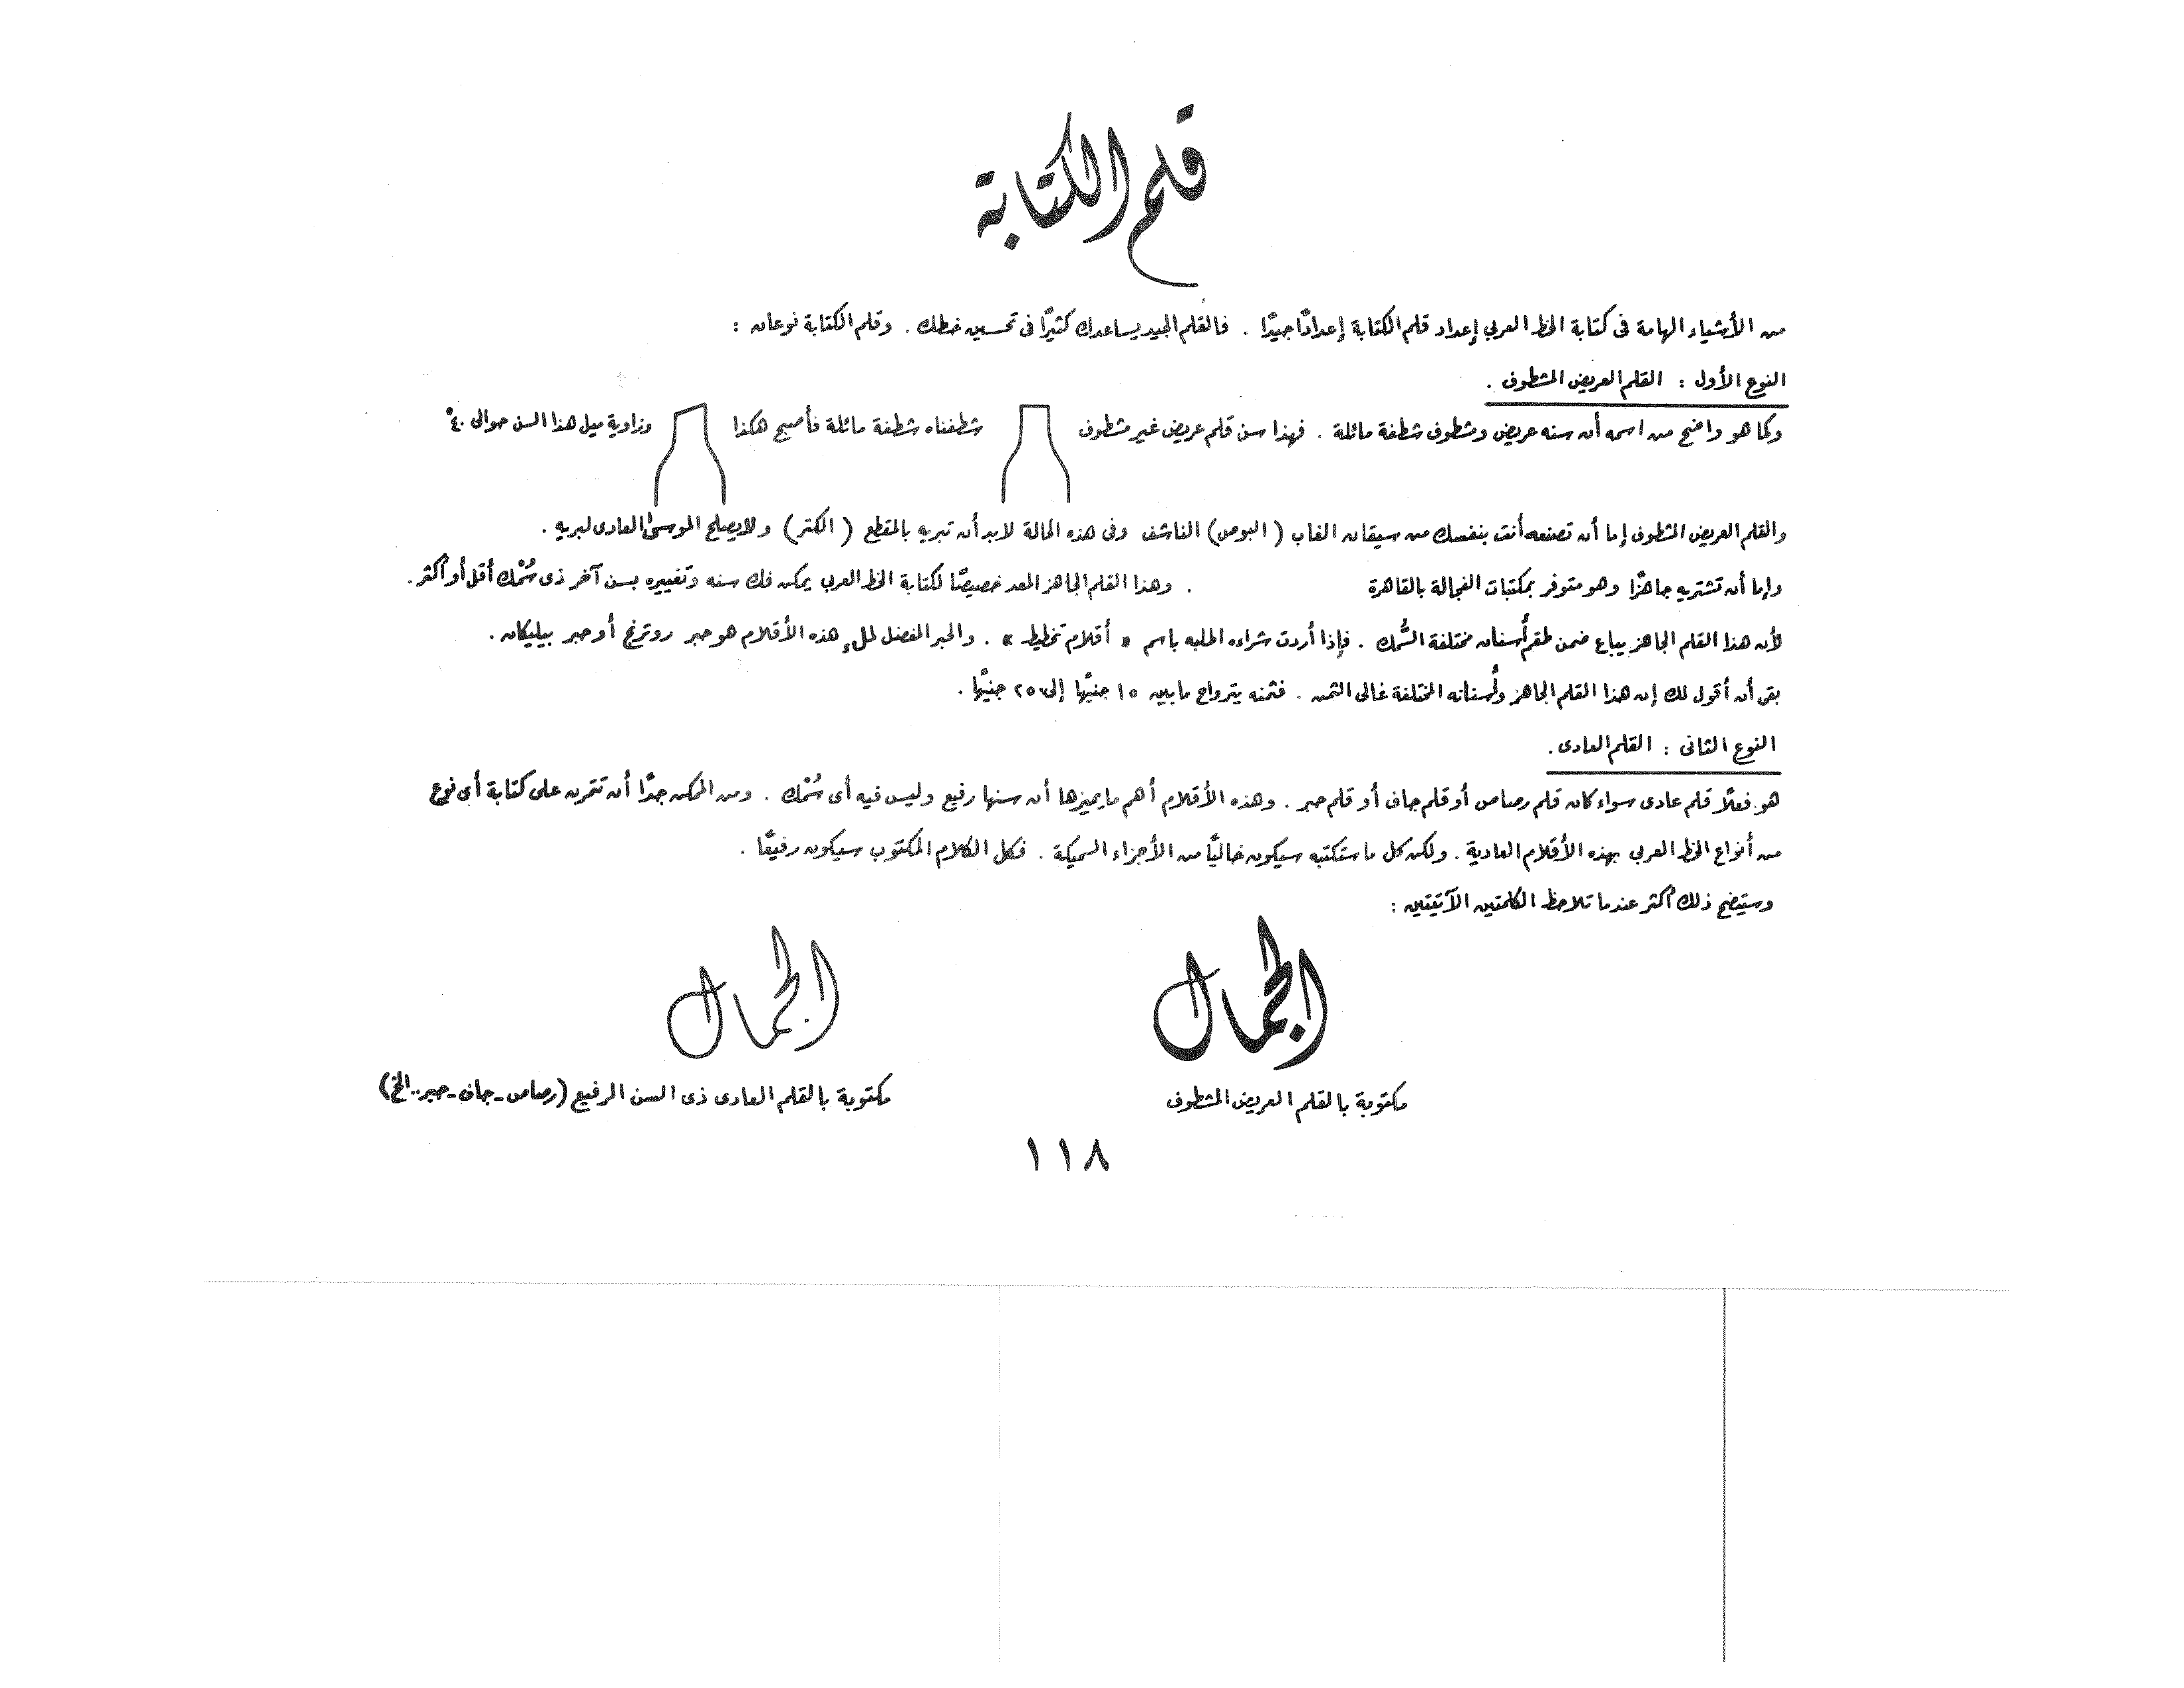 قلم الكتابة
من الأشياء الهامة فى كتابة الخط العربي إعداد قلم الكتابة إعدادًا جيدًا . فالقلم الجيد يساعدك كثيرًا فى تحسين خطك . وقلم الكتابة نوعان :
النوع الأول : القلم العريض المشطوف .
وكما هو واضح من اسمه أن سنه عريض ومشطوف شطفة مائلة . فهذا سن قلم عريض غير مشطوف شطفناه شطفة مائلة فأصبح هكذا وزاوية ميل هذا السن حوالى ٤٠°
والقلم العريض المشطوف إما أن تصنعه أنت بنفسك من سيقان الغاب ( البوص ) الناشف وفى هذه الحالة لابد أن تبريه بالمقطع ( الكتر ) ولايصلح الموسى العادى لبريه .
وإما أن تشتريه جاهزًا وهو متوفر بمكتبات الفجالة بالقاهرة . وهذا القلم الجاهز المعد خصيصًا لكتابة الخط العربي يمكن فك سنه وتغييره بسن آخر ذى سُمْك أقل أو أكثر .
لأن هذا القلم الجاهز يباع ضمن طقم أسنان مختلفة السُّمك . فإذا أردت شراءه اطلبه باسم « أقلام تخطيط » . والحبر المفضل لملء هذه الأقلام هو حبر روترنج أو حبر بيليكان .
بقى أن أقول لك إن هذا القلم الجاهز وأسنانه المختلفة غالى الثمن . فثمنه يترواح مابين ١٥ جنيهًا إلى ٢٥ جنيهًا .
النوع الثانى : القلم العادى .
هو فعلًا قلم عادى سواء كان قلم رصاص أو قلم جاف أو قلم حبر . وهذه الأقلام أهم مايميزها أن سنها رفيع وليس فيه أى سُمْك . ومن الممكن جدًا أن تتمرن على كتابة أى نوع
من أنواع الخط العربي بهذه الأقلام العادية . ولكن كل ما ستكتبه سيكون خاليًا من الأجزاء السميكة . فكل الكلام المكتوب سيكون رفيعًا .
وستيضح ذلك أكثر عندما تلاحظ الكلمتين الآتيتين :
الجمال الجمال
مكتوبة بالقلم العريض المشطوف مكتوبة بالقلم العادى ذى السن الرفيع (رصاص - جاف - حبر .. الخ)
١١٨